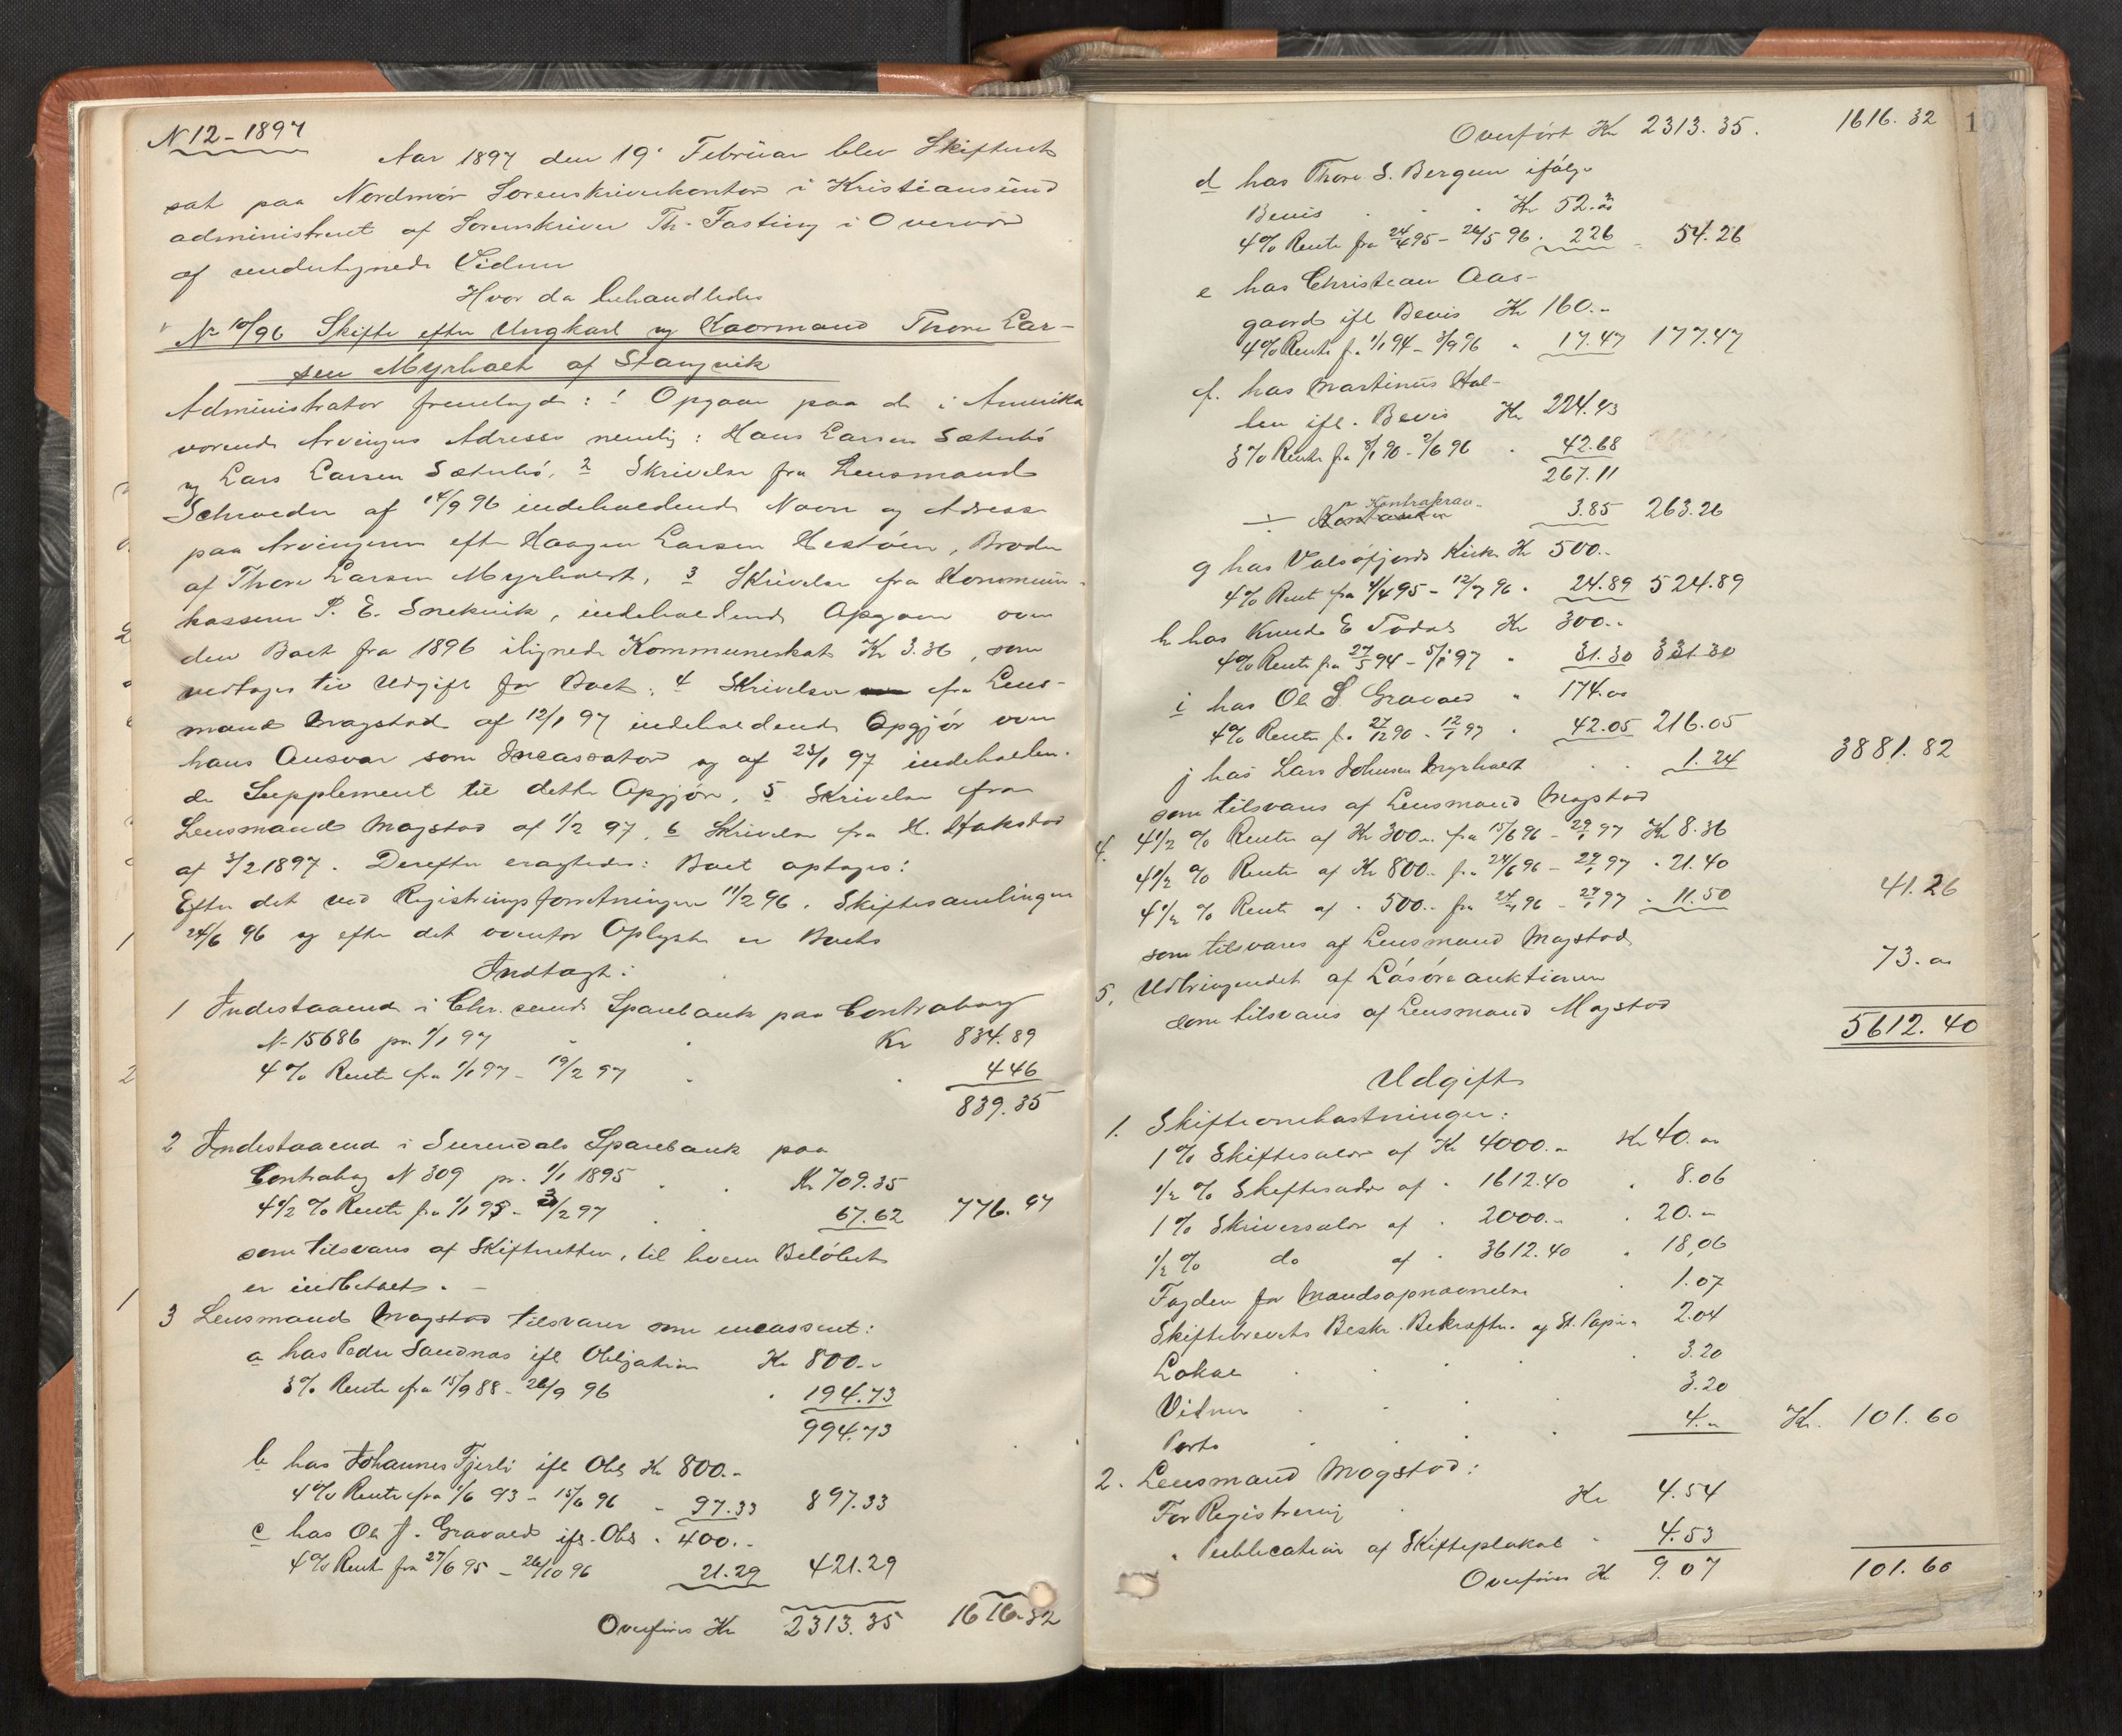 N 12 - 1897
Aar 1897 den 19' Februar blev Skifteret
sat paa Nordmør Sorenskriverkontor i Kristiansund
administreret af Sorenskriver Th. Fasting i Overvær
af undertegnede Vidner
Hvor da behandledes
No 10/96 Skifte efter Ungkarl og Kaarmand Thore Lar-
sen Myrholt af Stangvik
Administrator fremlagde: 1 Opgave paa de i Amerika
værende Arvinges Adresse nemlig: Hans Larsen Sæterbø
og Lars Larsen Sæterbø, 2 Skrivelse fra Lensmand
Schrøder af 14/9 96 indeholdende Navn og Adresse
paa Arvingerne efter Haagen Larsen Hestøen, Broder
af Thore Larsen Myrholt, 3 Skrivelse fra Kommune-
kasserer P. E. Snekvik, indeholdende Opgave over
den Boet for 1896 ilignede Kommuneskat Kr 3.36, som
vedtages til Udgift for Boet, 4 Skrivelse fra Lens-
mand Mogstad af 12/1 97 indeholdende Opgjør over
hans Ansvar som Incassator og af 23/1 97 indeholden-
de Supplement til dette Opgjør, 5 Skrivelse fra
Lensmand Mogstad af 1/2 97, 6 Skrivelse fra H. Hakstad
af 3/2 1897. Derefter eragtedes: Boet optages:
Efter det ved Registreringsforretningen 11/2 96, Skiftesamlingen
24/6 96 og efter det ovenfor Oplyste er Boets
Indtægt:
1 Indestaaende i Chr.sunds Sparebank paa Contrabog
N 15686 pr. 1/1 97 Kr 834.89
4% Rente fra 1/1 97 - 19/2 97 446
839.35
2 Indestaaende i Surendals Sparebank paa
Contrabog N 309 pr. 1/1 1895 Kr 709.35
4 1/2 % Rente fra 1/1 95 - 3/2 97 67.62 776.97
som tilsvares af Skifteretten, til hvem Beløbet
er indbetalt. -
3 Lensmand Mogstad tilsvarer som incasseret:
a hos Peder Sandnæs ifl Obligation Kr 800.-
3% Rente fra 15/9 88 - 26/9 96 194.73
994.73
b hos Johannes Fjerli ifl Obl Kr 800.-
4% Rente fra 1/6 93 - 15/6 96 - 97.33 897.33
c hos Ole J. Gravald ifl. Obl. 400.-
4% Rente fra 27/6 95 - 26/10 96 21.29 421.29
Overføres Kr 2313.35 1616.32
Overført Kr 2313.35. 1616.32 1
d hos Thore S. Bergum ifølge
Bevis Kr 52.00
4% Rente fra 24/4 95 - 26/5 96. 226 54.26
e hos Christian Aas-
gaard ifl Bevis Kr 160.-
4% Rente fra 1/1 94 - 3/9 96 17.47 177.47
f. hos Martinus Hal-
len ifl. Bevis Kr 224.43
3% Rente fra 8/1 90 - 2/6 96 42.68
267.11
÷ Kontrakrav 3.85 263.26
g hos Valsøfjords Kirke Kr 500.-
4% Rente fra 4/4 95 - 12/7 96 24.89 524.89
h hos Knud E Todal Kr 300.-
4% Rente fra 27/5 94 - 5/1 97 31.30 331.30
i hos Ole L Gravald 174.00
4% Rente fr. 27/12 90 - 12/1 97 42.05 216.05
j hos Lars Johnsen Myrholt 1.24 3881.82
som tilsvares af Lensmand Mogstad
4. 4 1/2 % Rente af Kr 300.- fra 15/6 96 - 29/1 97 Kr 8.36
4 1/2 % Rente af Kr 800.- fra 24/6 96 - 29/1 97 21.40
4 1/2 % Rente af 500.- fra 24/7 96 - 29/1 97 11.50 41.26
som tilsvares af Lensmand Mogstad
5. Udbringendet af Løsøreauktionen 73.00
som tilsvares af Lensmand Mogstad
5612.40
Udgift
1. Skifteomkostninger:
1% Skiftesalær af Kr 4000.- Kr 40.00
1/2 % Skiftesalær af 1612.40 8.06
1% Skriversalær af 2000.- 20.-
1/2 % do af 3612.40 18,06
Fogden for Mandsopnævnelse 1.07
Skiftebrevets Beskr. Bekræftn. og St. Papir 2.04
Lokale 3.20
Vidner 3.20
Porto 4.- Kr. 101.60
2. Lensmand Mogstad:
For Registrering Kr 4.54
" Publication af Skifteplakat 4.53
Overføres Kr 9.07 101.60